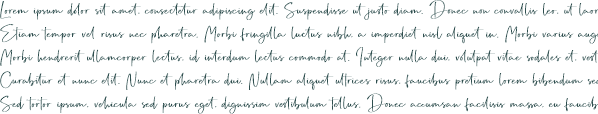 Lorem ipsum dolor sit amet, consectetur adipiscing elit. Suspendisse ut justo diam. Donec non convallis leo, ut laor
Etiam tempor vel risus nec pharetra. Morbi fringilla luctus nibh, a imperdiet nisl aliquet in. Morbi varius aug
Morbi hendrerit ullamcorper lectus, id interdum lectus commodo at. Integer nulla dui, volutpat vitae sodales et, vest
Curabitur et nunc elit. Nunc et pharetra dui. Nullam aliquet ultrices risus, faucibus pretium lorem bibendum sed
Sed tortor ipsum, vehicula sed purus eget, dignissim vestibulum tellus. Donec accumsan facilisis massa, eu faucib